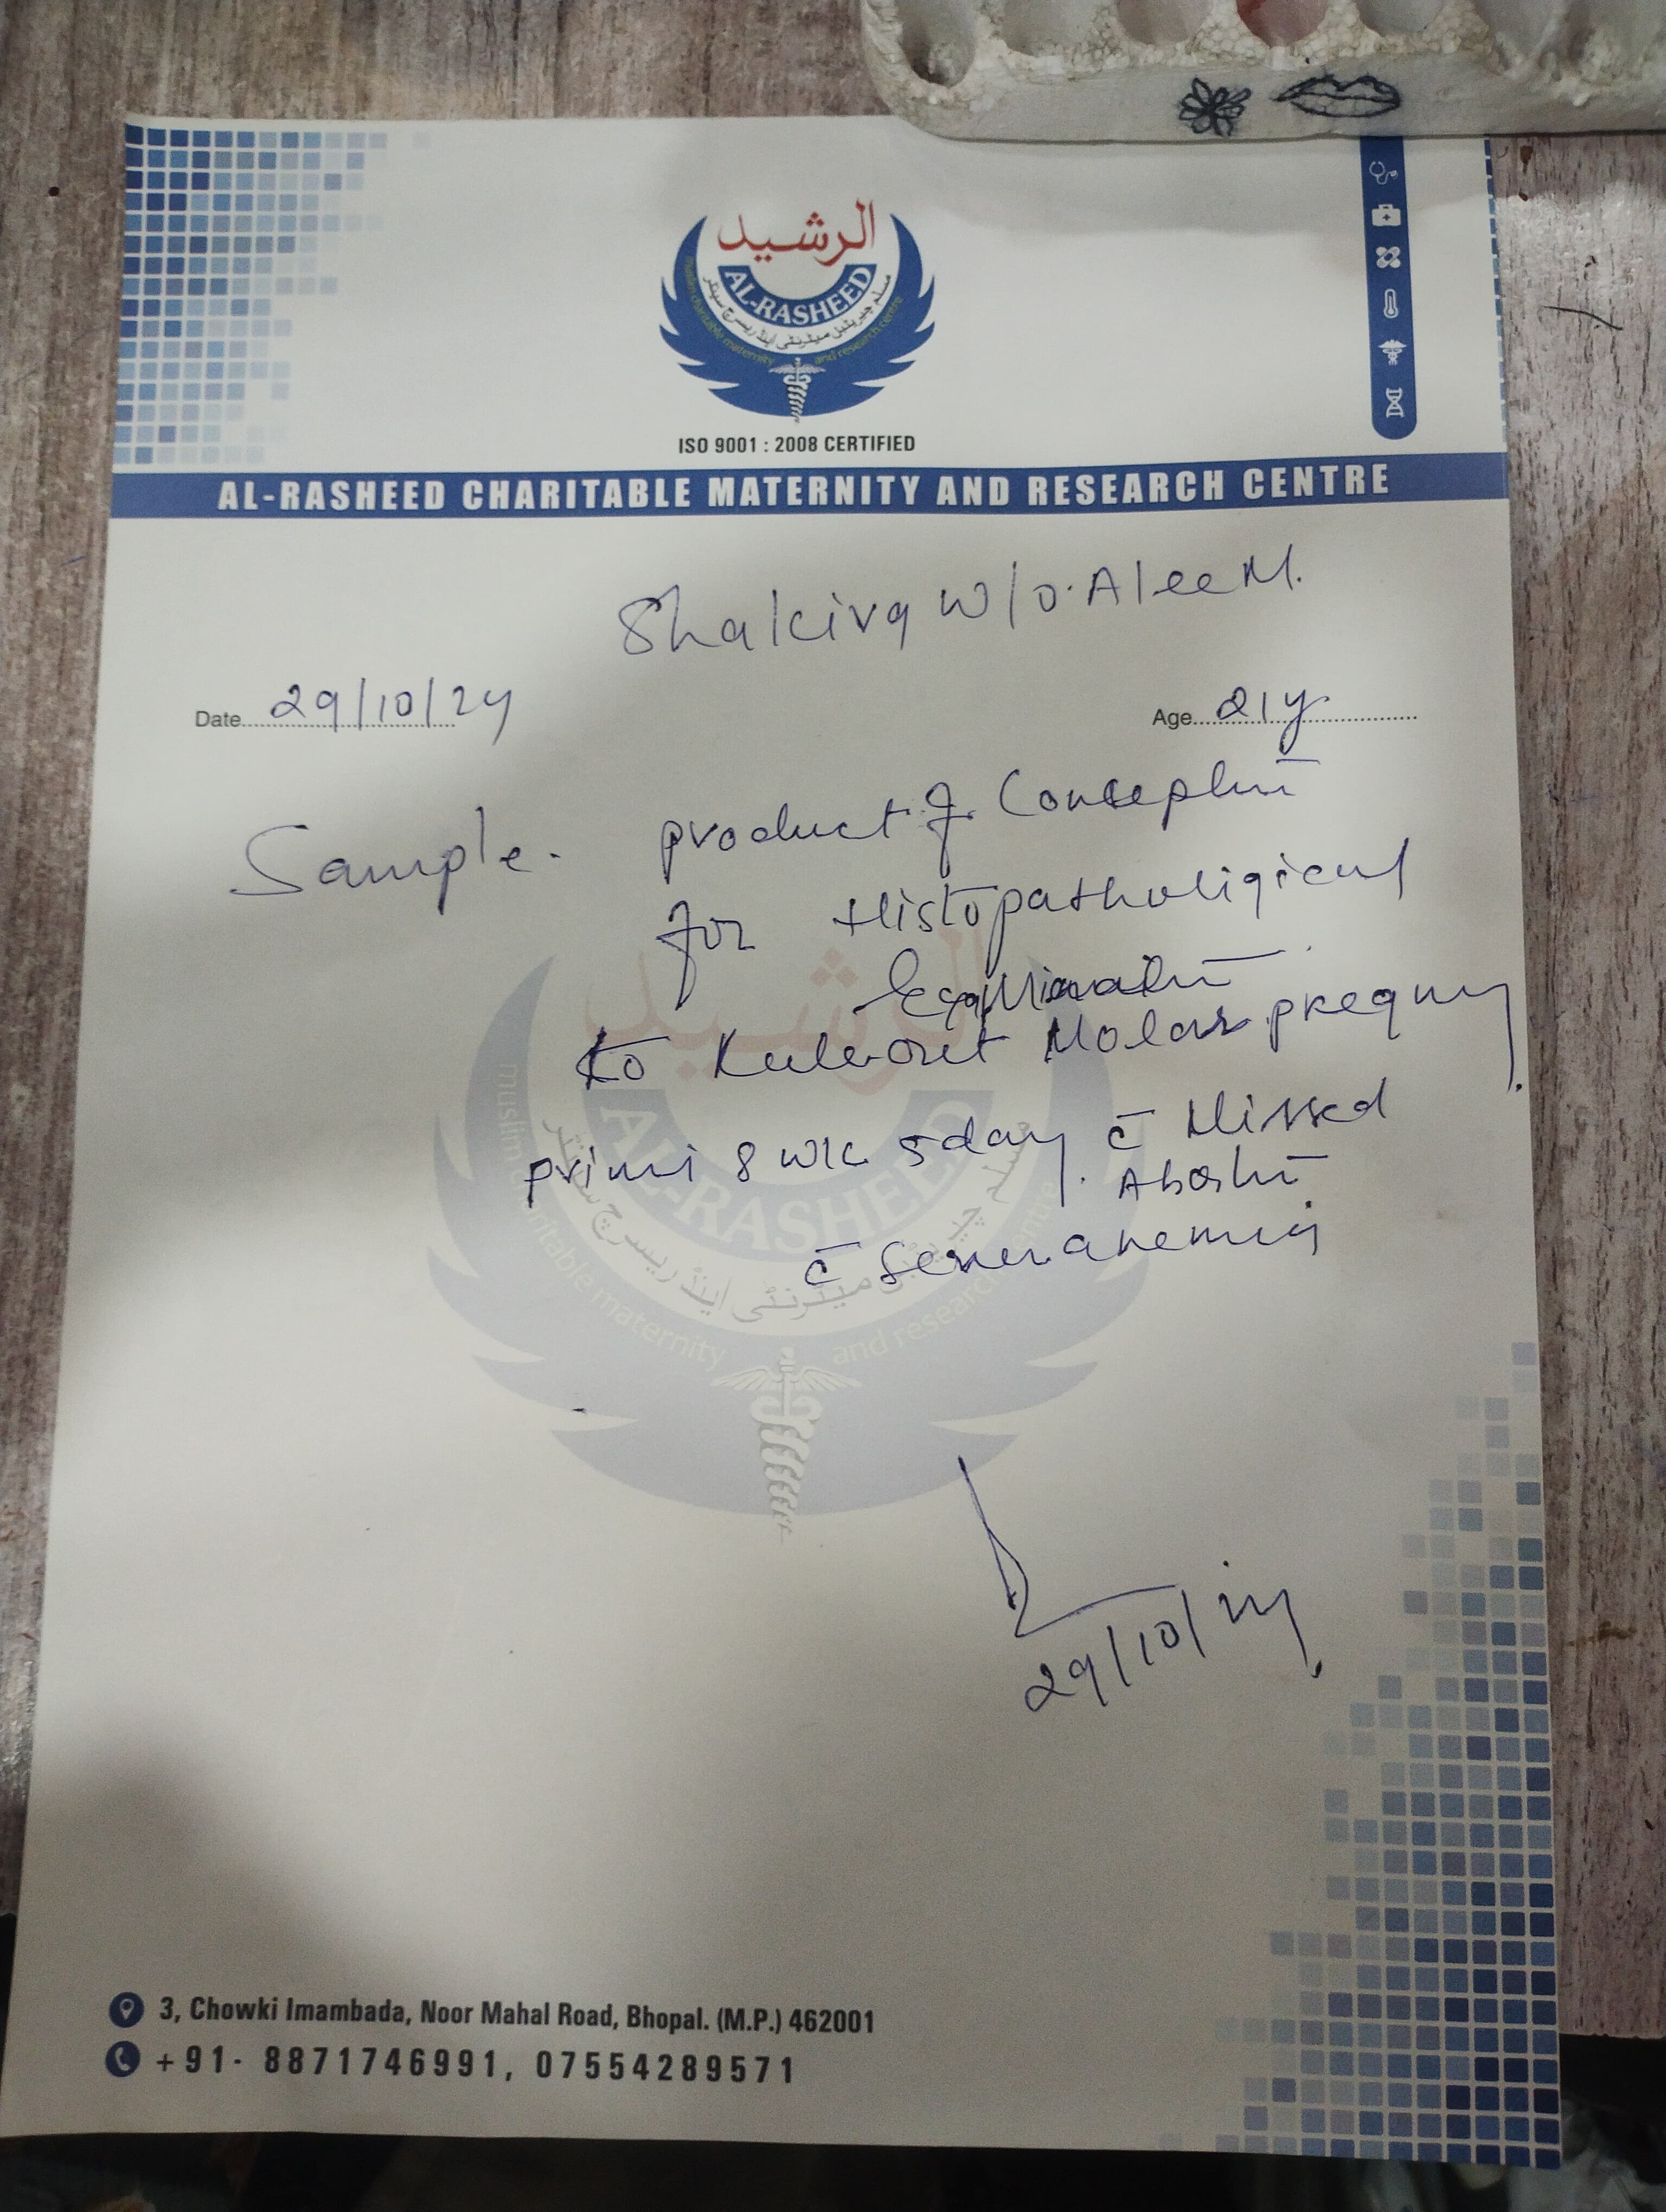 الرشيد
AL-RASHEED
مسلم چیریٹیبل میٹرنٹی اینڈ ریسرچ سینٹر
muslim charitable maternity and research centre
ISO 9001 : 2008 CERTIFIED
AL-RASHEED CHARITABLE MATERNITY AND RESEARCH CENTRE
Shakira W/o. AleeM.
Date 29/10/24 Age 21y
Sample. product of Conception
for Histopathological
Examination
to Rule-out Molar pregnancy
primi 8 wk 5day c̄ Missed
Abortion
c̄ Severe anemia
29/10/24
الرشيد
AL-RASHEED
مسلم چیریٹیبل میٹرنٹی اینڈ ریسرچ سینٹر
muslim charitable maternity and research centre
3, Chowki Imambada, Noor Mahal Road, Bhopal. (M.P.) 462001
+91- 8871746991, 07554289571